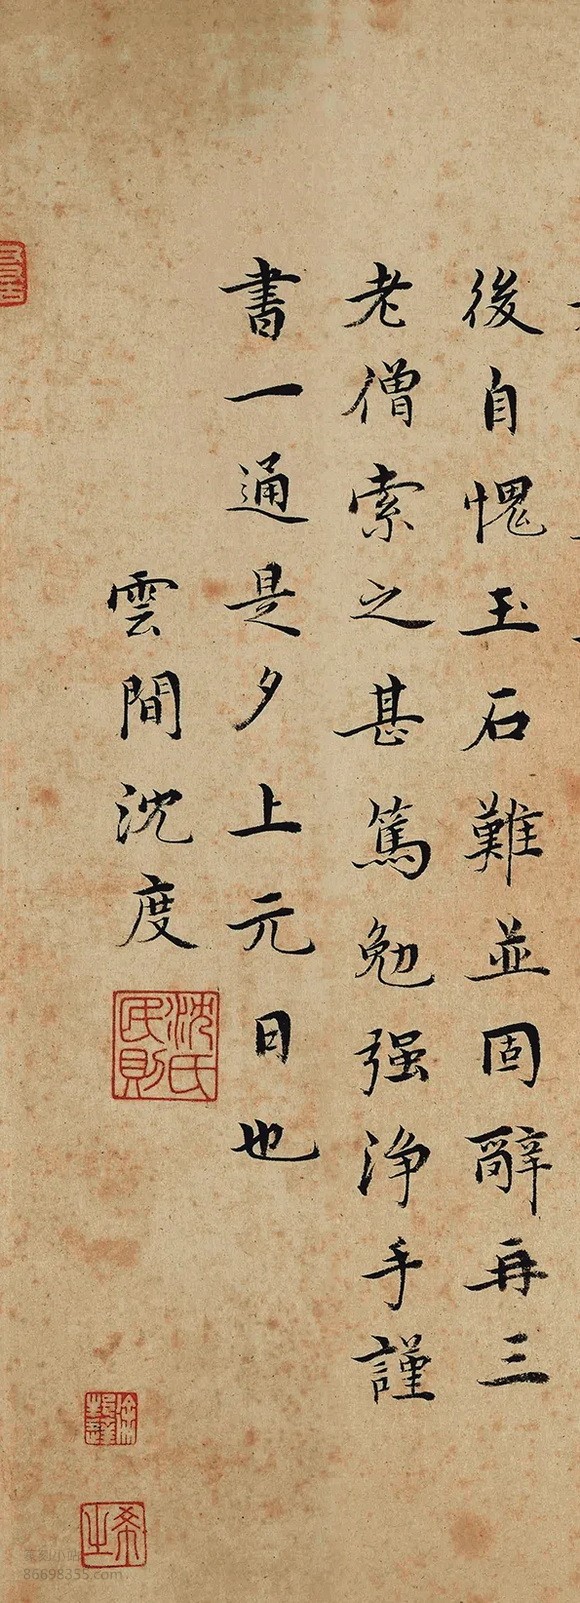 後自愧玉石難並固辭再三
老僧索之甚篤勉强淨手謹
書一通是夕上元日也
雲間沈度
沈氏民則
希之
86698355.com